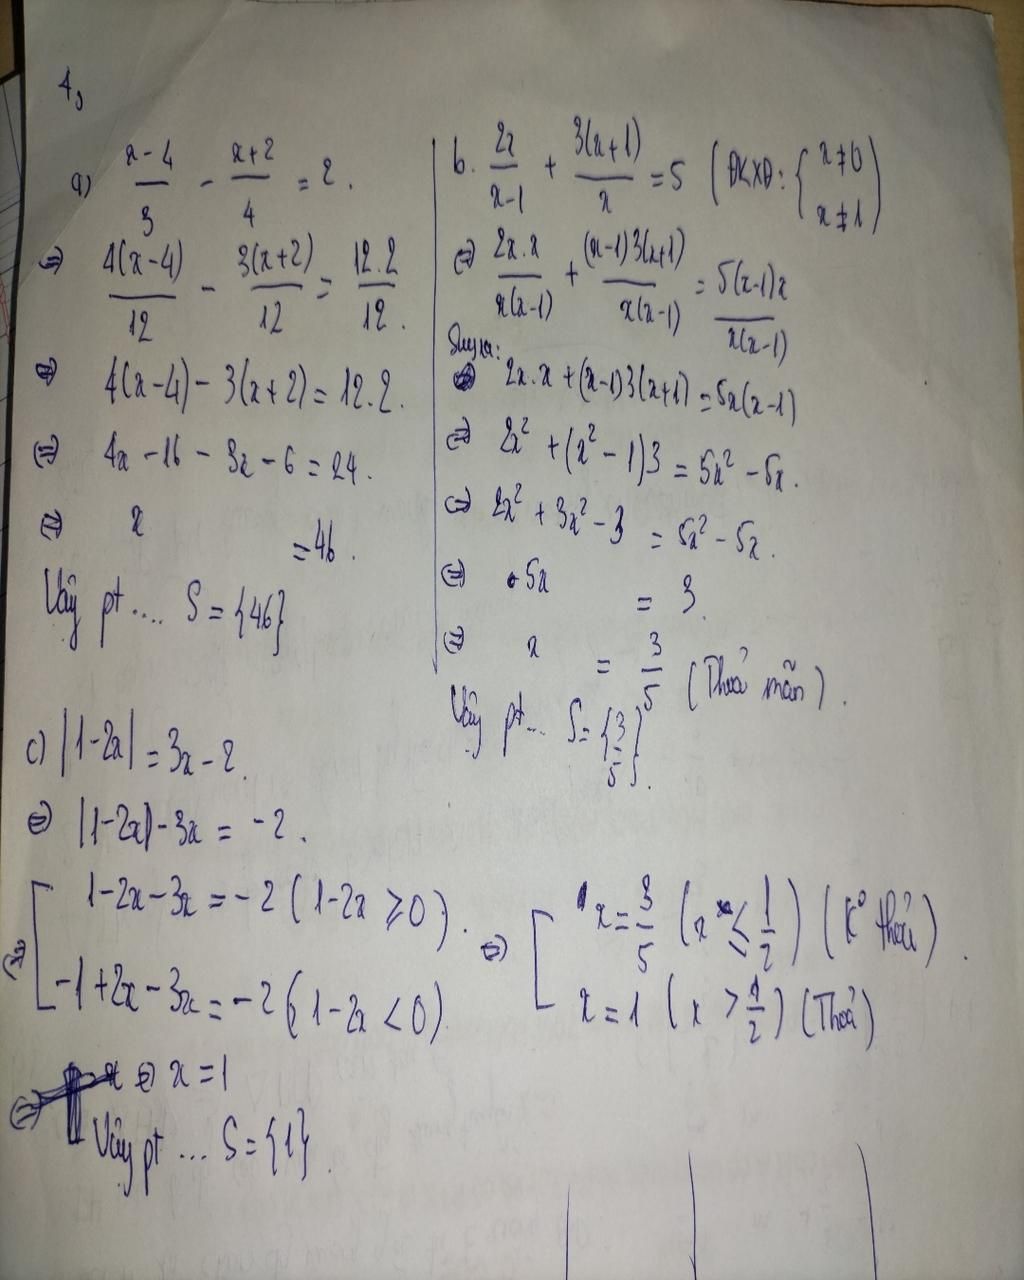 4,
a) \frac{x-4}{3} - \frac{x+2}{4} = 2.
⇔ \frac{4(x-4)}{12} - \frac{3(x+2)}{12} = \frac{12.2}{12}.
⇔ 4(x-4) - 3(x+2) = 12.2.
⇔ 4x - 16 - 3x - 6 = 24.
⇔ x = 46.
Vậy pt .... S = {46}
b. \frac{2x}{x-1} + \frac{3(x+1)}{x} = 5 (ĐKXĐ: { x ≠ 0
x ≠ 1)
⇔ \frac{2x.x}{x(x-1)} + \frac{(x-1)3(x+1)}{x(x-1)} = \frac{5(x-1)x}{x(x-1)}
Suy ra:
2x.x + (x-1)3(x+1) = 5x(x-1)
⇔ 2x² + (x² - 1)3 = 5x² - 5x.
⇔ 2x² + 3x² - 3 = 5x² - 5x.
⇔ 5x = 3.
⇔ x = \frac{3}{5} (Thoả mãn).
Vậy pt... S = {\frac{3}{5}}.
c) |1-2x| = 3x - 2.
⇔ |1-2x| - 3x = -2.
⇔ [ 1-2x-3x = -2 (1-2x ≥ 0).
-1+2x-3x = -2 (1-2x < 0)
⇔ [ x = \frac{3}{5} (x ≤ \frac{1}{2}) (K° thoả).
x = 1 (x > \frac{1}{2}) (Thoả)
⇔ x = 1
Vậy pt ... S = {1}.